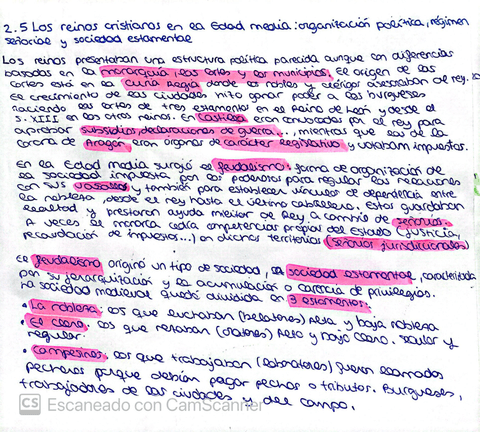 2.5 Los reinos cristianos en la Edad media: organización política, régimen
señorial y sociedad estamental
Los reinos presentaban una estructura política parecida aunque con diferencias
basadas en la monarquía, las cortes y los municipios. El origen de las
cortes está en la curia regia donde los nobles y clérigos asesoraban al rey.
El crecimiento de las ciudades hizo ganar poder a los burgueses
naciendo las cortes de tres estamentos en el Reino de León y desde el
S. XIII en los otros reinos. En Castilla eran convocadas por el rey para
aprobar subsidios, declaraciones de guerra..., mientras que las de la
corona de Aragón eran órganos de carácter legislativo y votaban impuestos.
En la Edad media surgió el feudalismo: forma de organización de
la sociedad impuesta por los poderosos para regular las relaciones
con sus vasallos y también para establecer vínculos de dependencia entre
la nobleza, desde el rey hasta el último caballero. Estos guardaban
lealtad y prestaban ayuda militar al Rey, a cambio de señoríos.
A veces el monarca cedía competencias propias del Estado (justicia,
recaudación de impuestos...) en dichos territorios (señoríos jurisdiccionales)
El feudalismo originó un tipo de sociedad, la sociedad estamental, caracterizada
por su jerarquización y la acumulación o carencia de privilegios.
La sociedad medieval quedó dividida en 3 estamentos:
• La nobleza, los que luchaban (belatores) Alta y baja nobleza
• El clero, los que rezaban (oratores) Alto y bajo clero. Secular y
regular.
• Campesinos, los que trabajaban (laboratores) fueron llamados
pecheros porque debían pagar pechos o tributos. Burgueses,
trabajadores de las ciudades y del campo.
CS Escaneado con CamScanner